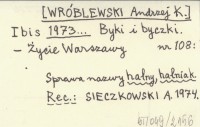 [WRÓBLEWSKI Andrzej K.]
Ibis 1973... Byki i byczki.
– Życie Warszawy nr 108:
Sprawa nazwy halny, halniak
Rec.: SIECZKOWSKI A. 1974.